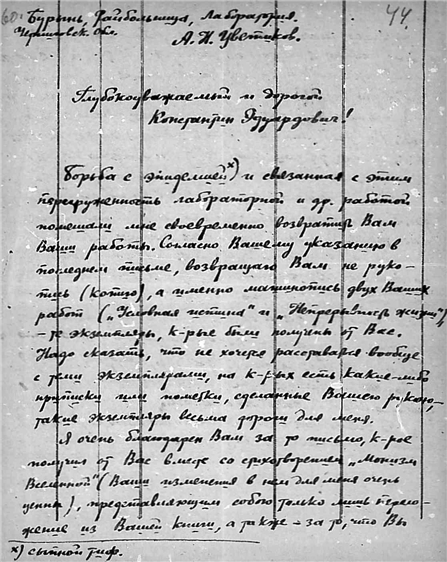 60. Бурынь, Райбольница, Лаборатория. 44.
Черниговск. Обл. А. И. Цветиков.
Глубокоуважаемый и дорогой
Константин Эдуардович!
Борьба с эпидемией х) и связанная с этим
перегруженность лабораторной и др. работой
помешали мне своевременно возвратить Вам
Ваши работы. Согласно Вашему указанию в
последнем письме, возвращаю Вам не руко-
пись (копию), а именно машинопись двух Ваших
работ („Условная истина" и „Непрерывность жизни")
- те экземпляры, к-рые были получены от Вас.
Надо сказать, что не хочется расставаться вообще
с теми экземплярами, на к-рых есть какие-либо
приписки или пометки, сделанные Вашею рукою,
такие экземпляры весьма дороги для меня.
Я очень благодарен Вам за то письмо, к-рое
получил от Вас вместе со стихотворением „Монизм
Вселенной" (Ваши изменения в нем для меня очень
ценны), представляющим собою только лишь перело-
жение из Вашей книги, а также - за то, что Вы
х) сыпной тиф.